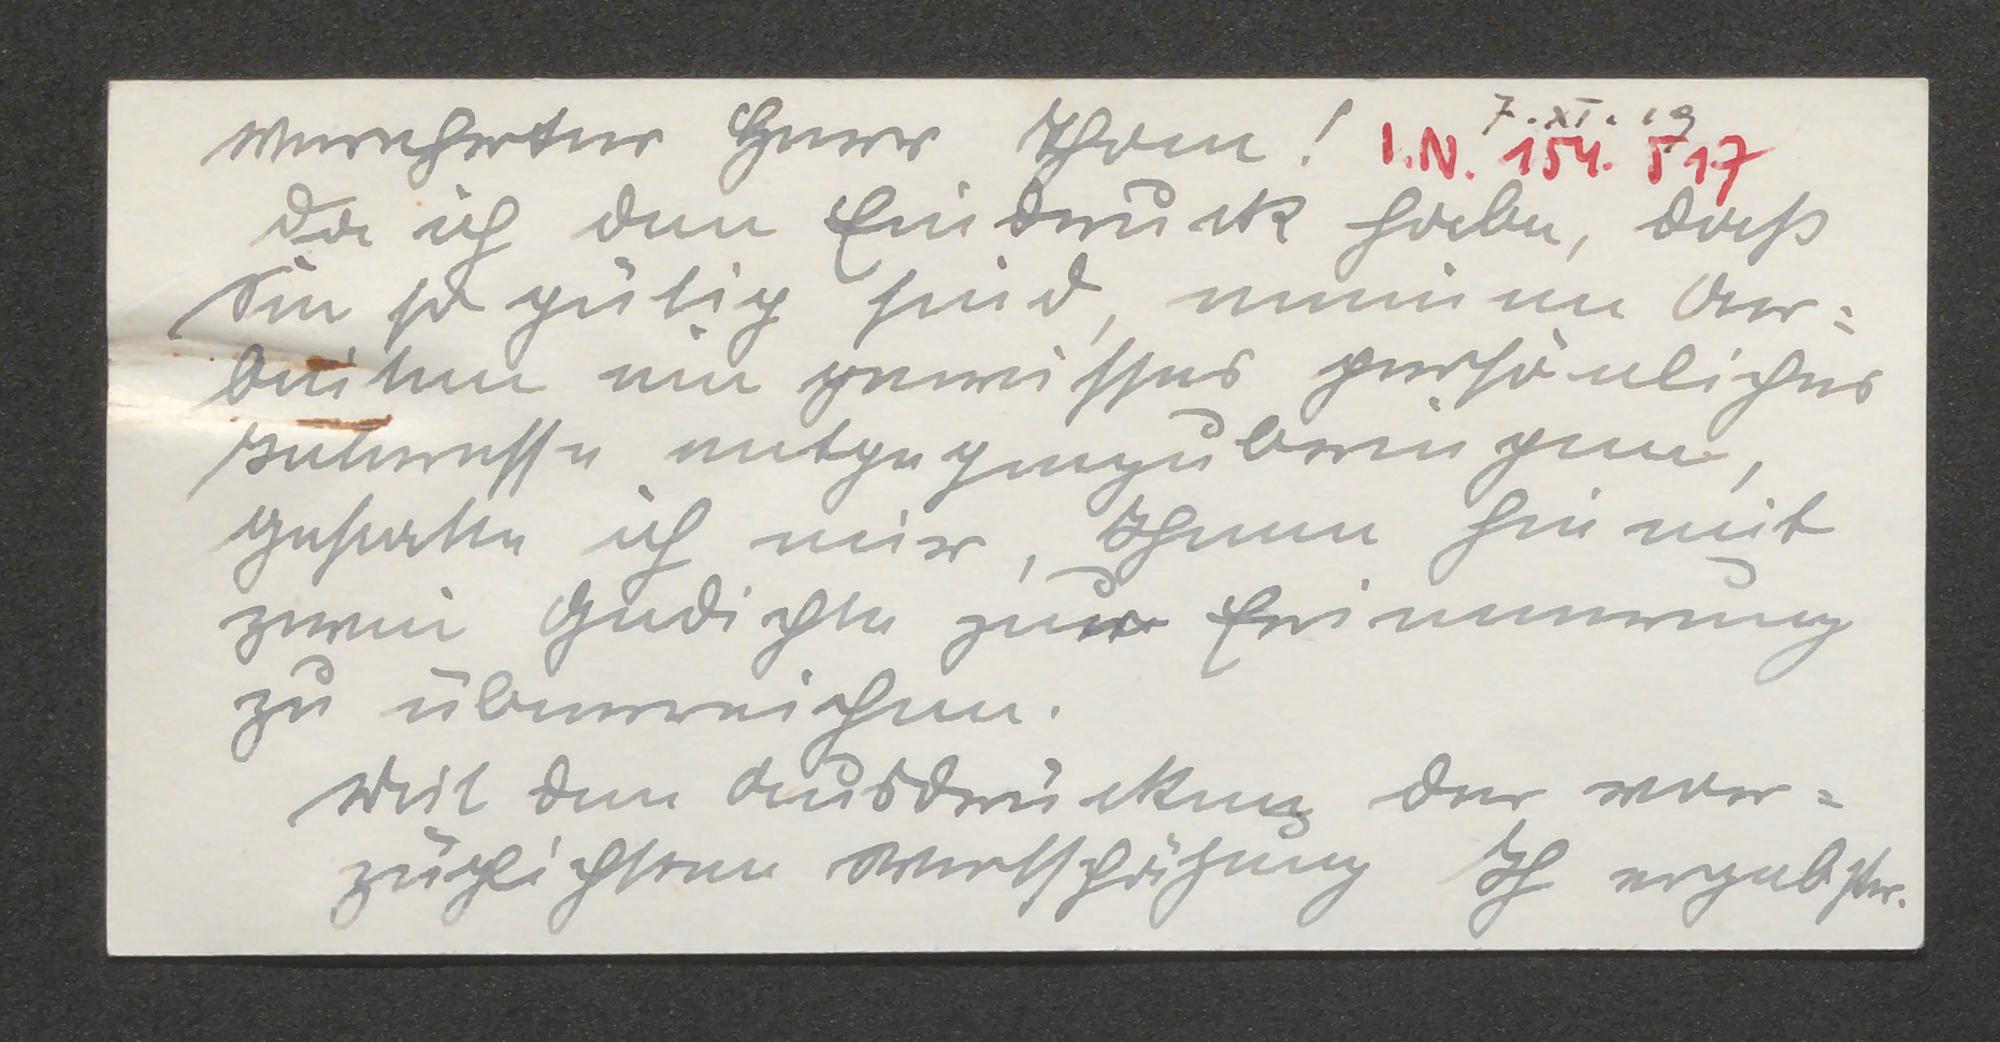 7. XI. 19
I.N. 154. 517
verehrter Herr Thom!
da ich den Eindruck habe, daß
Sie so gütig sind, meinen Ar=
beiten ein gewisses persönliches
Interesse entgegenzubringen,
gestatte ich mir, Ihnen hiemit
zwei Gedichte zur Erinnerung
zu überreichen.
Mit den Ausdrücken der vor=
züglichsten Wertschätzung Ihr ergebster.